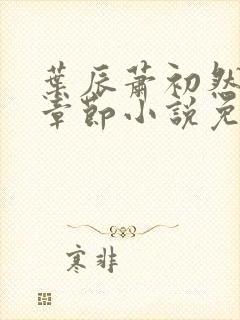 葉辰蕭初然
章節小說免
寒非